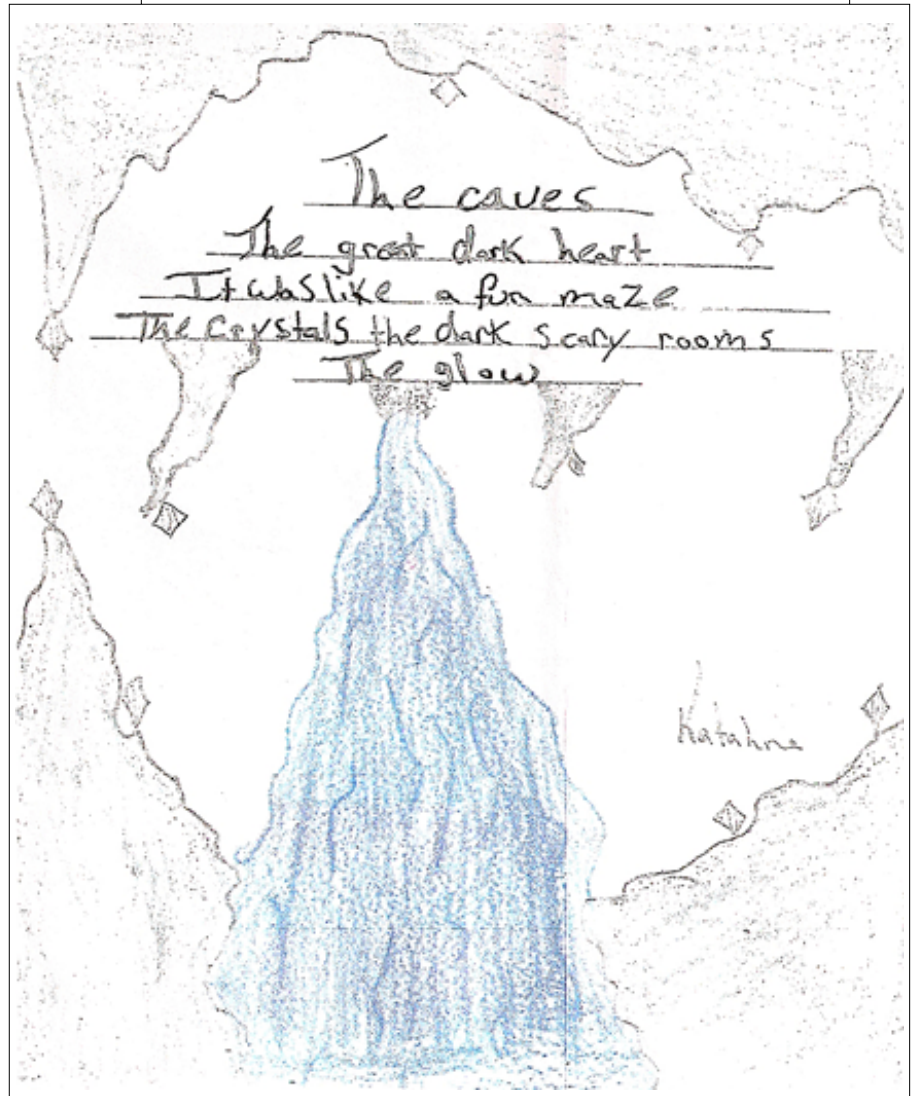 The caves
The great dark heart
It was like a fun maze
The Crystals the dark scary rooms
The glow